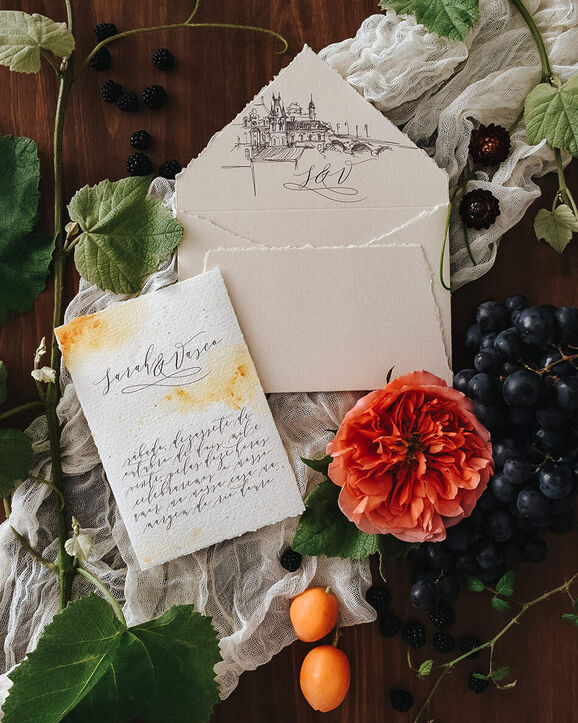 S & V
Sarah & Vasco
sábado, dezassete de
outubro de dois mil e
vinte, pelas doze horas
celebraremos o nosso
amor na nossa casa, na
margem do rio douro.